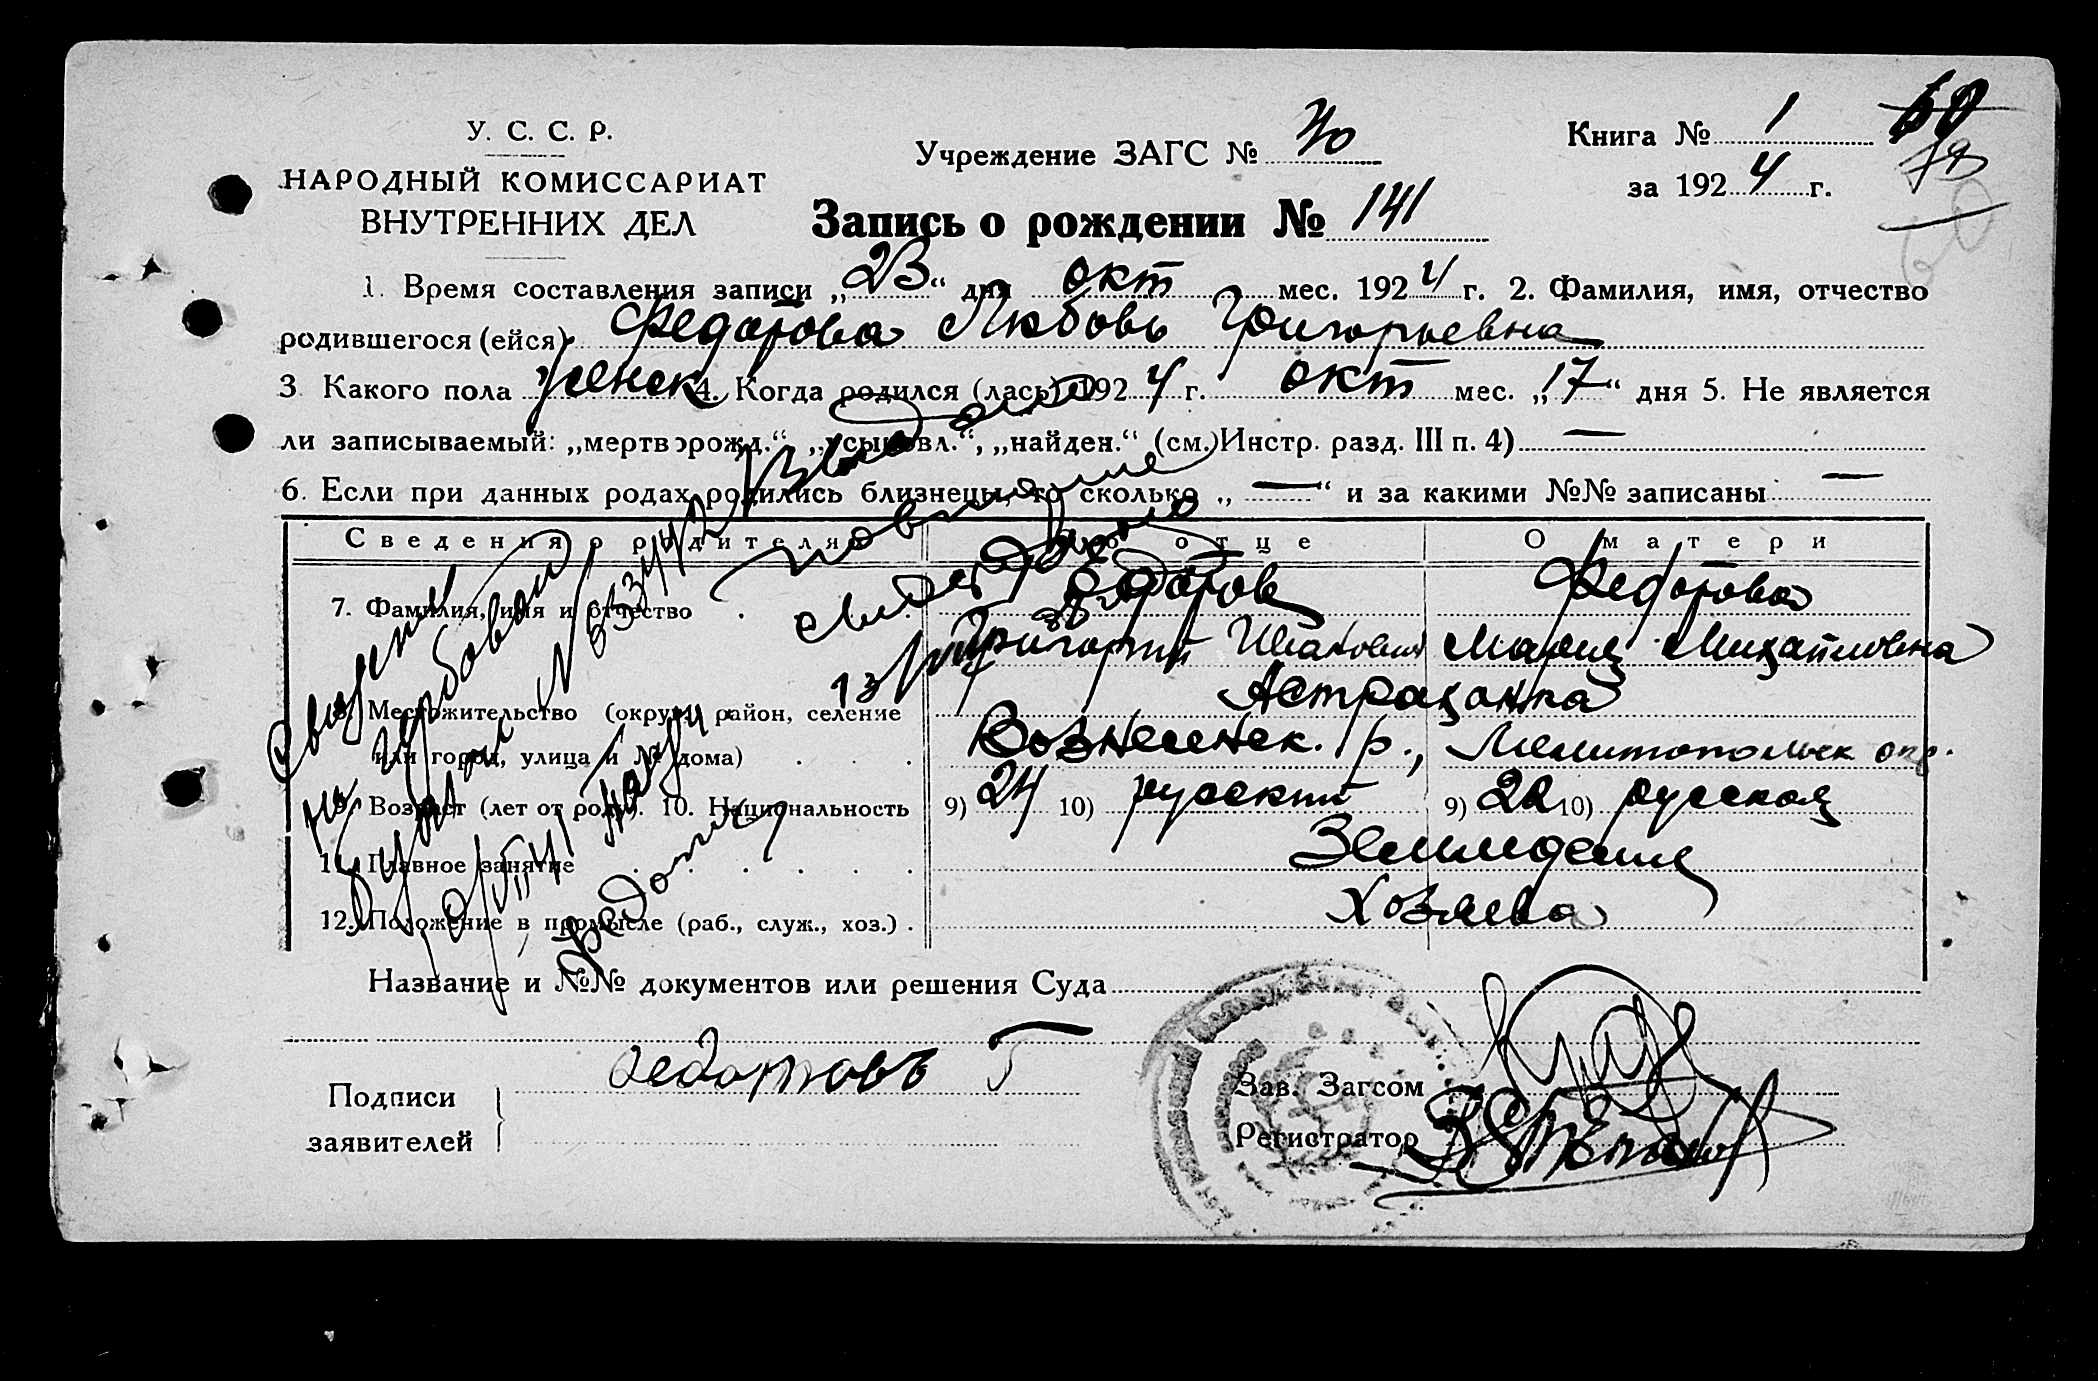 У. С. С. Р.
НАРОДНЫЙ КОМИССАРИАТ
ВНУТРЕННИХ ДЕЛ
Учреждение ЗАГС №
Книга № 1
60
за 1924 г.
Запись о рождении № 141
1. Время составления записи „23“ дня окт мес. 1924 г. 2. Фамилия, имя, отчество
родившегося (ейся) Федотова Любовь Григорьевна
3 Какого пола женск 4. Когда родился (лась) 1924 г. окт мес. „17“ дня 5. Не является
ли записываемый: „мертворожд.“ „усыновл.“, „найден.“ (см. Инстр. разд. III п. 4) —
6. Если при данных родах родились близнецы, то сколько „ — “ и за какими №№ записаны —
Сведения о родителях Об отце О матери
7. Фамилия, имя и отчество Федотов Федотова
Григорий Иванович Мария Михайловна
Астраханка
8. Местожительство (округ, район, селение
или город, улица и № дома) Вознесенск. р., Мелитопольск окр.
9. Возраст (лет от роду). 10. Национальность 9) 24 10) русский 9) 22 10) русская
11. Главное занятие Земледелие
12. Положение в промысле (раб., служ., хоз.) Хозяева
Выдано
повторное
свидетельство
Название и №№ документов или решения Суда
Подписи
заявителей
Федотовъ Г
Зав. Загсом
Регистратор